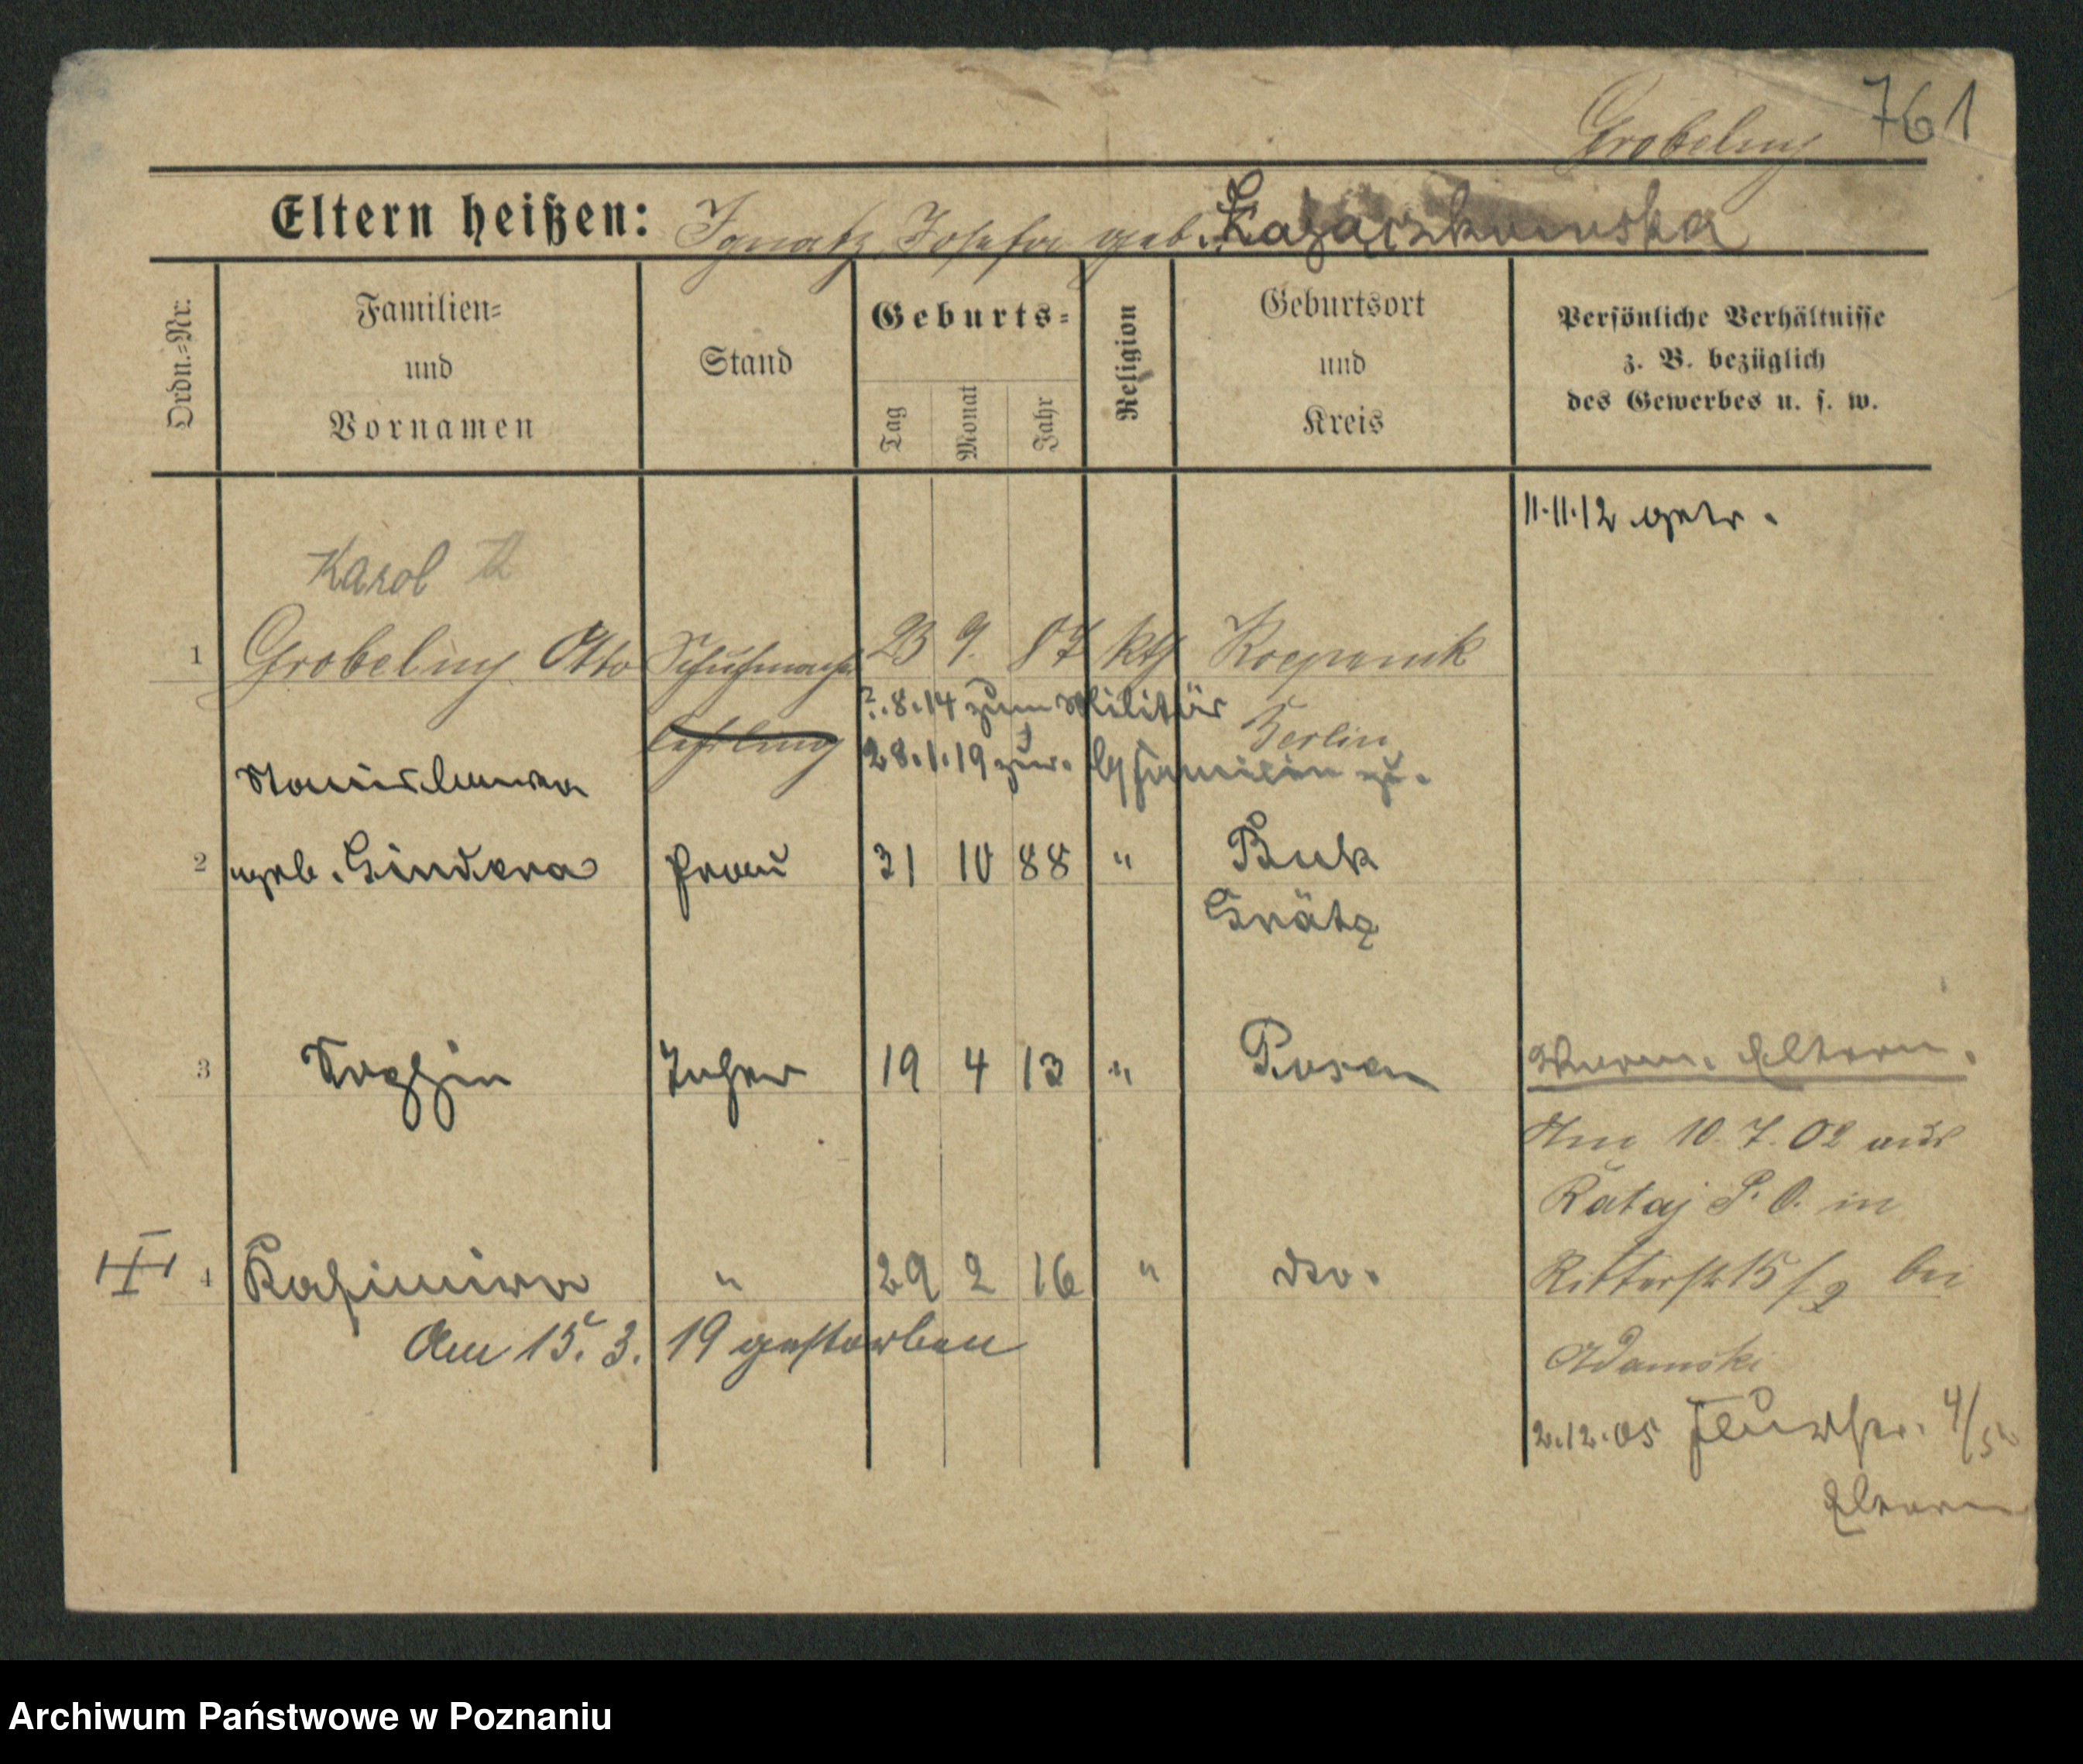 761
Grobelny
Eltern heißen: Ignatz, Josefa geb.
Ordn.-Nr.
Familien-
und
Vornamen
Stand
Geburts-
Tag
Monat
Jahr
Religion
Geburtsort
und
Kreis
Persönliche Verhältnisse
z. B. bezüglich
des Gewerbes u. s. w.
11.11.12 getr.
Karol
1 Grobelny Otto Schuhmacher 23 9. 87 kth Koepenick
Lehrling Berlin
?.8.14 zum Militär
28.1.19 zur.
Stanislawa
2 geb. Gindera Frau 31 10 88 " Buk
Grätz
3 Sohn 19 4 13 " Posen
Eltern.
Am 10.7.02 aus
Rataj P. O. in
4 Kasimira " 29 2 16 " dto.
Ritterstr 15/2 bei
Am 15. 3. 19 gestorben
Adamski
2.12.05
Eltern
Archiwum Państwowe w Poznaniu